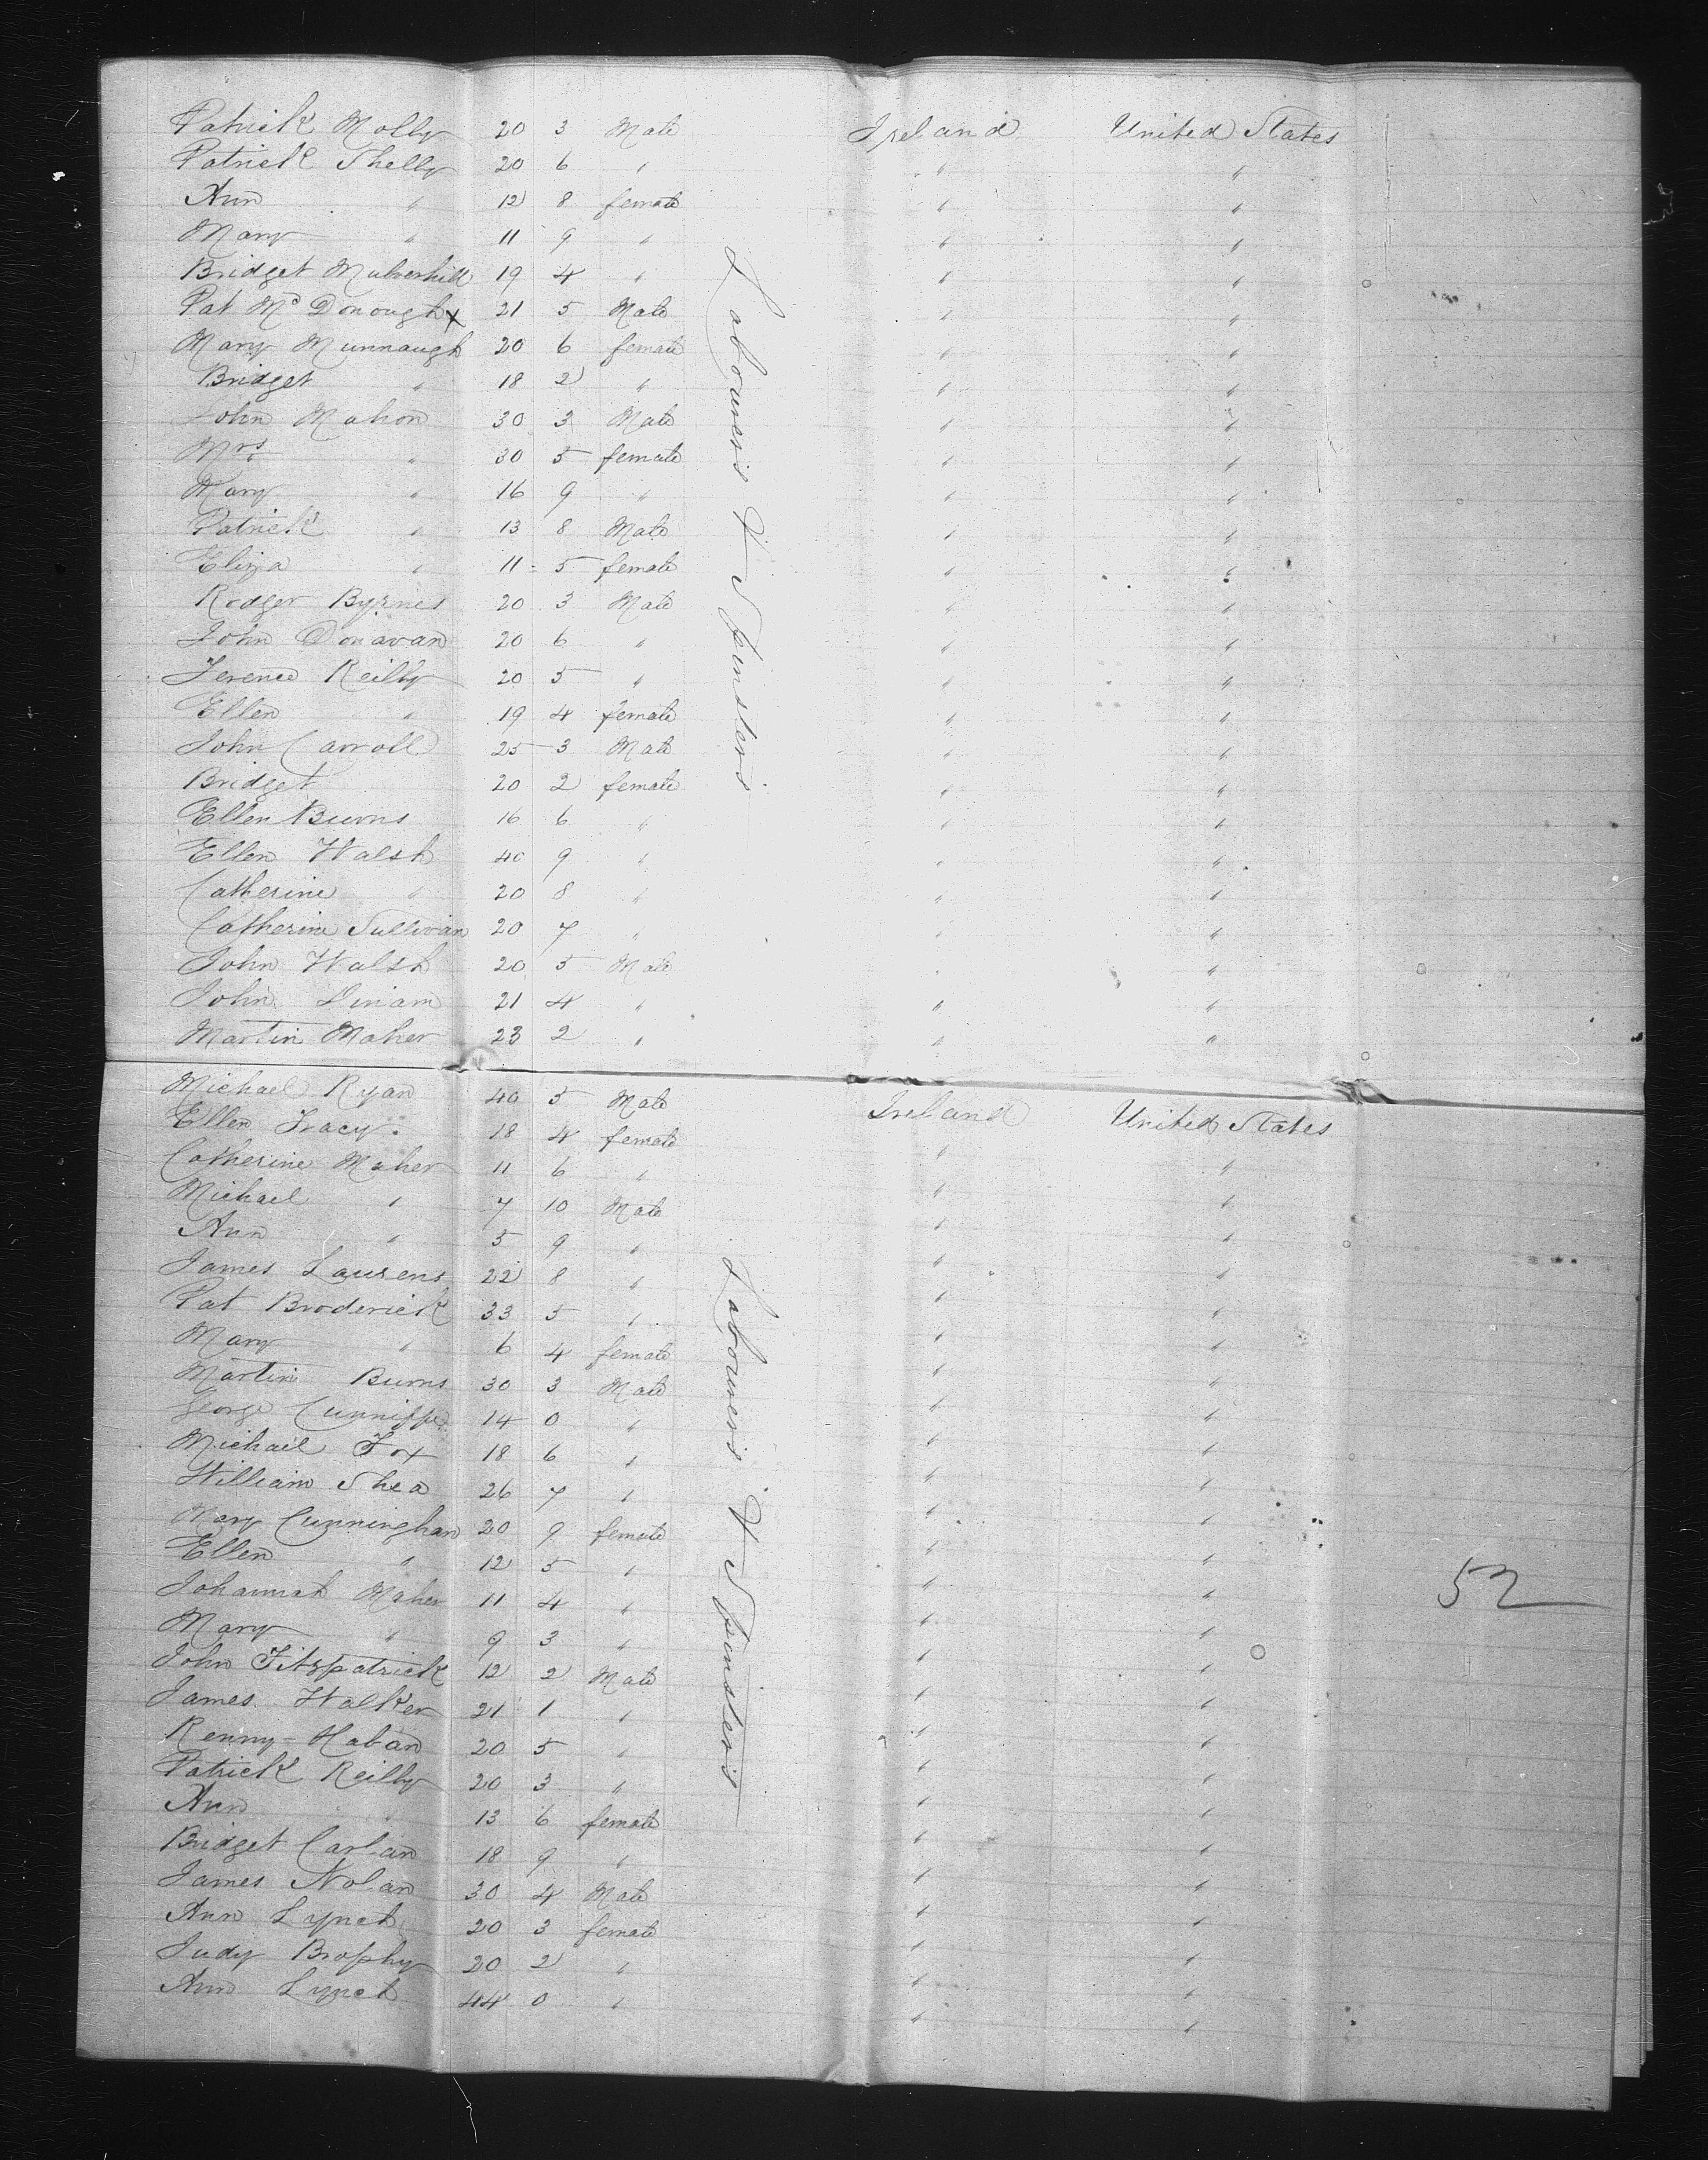 Patrick Molloy 20 3 Male Ireland United States
Patrick Shelly 20 6 " " "
Ann " 12 8 female " "
Mary " 11 9 " " "
Bridget Mulverhill 19 4 " " "
Pat McDonough x 21 5 Male " "
Mary Munnaugh 20 6 female " "
Bridget " 18 2 " " "
John Mahon 30 3 Male " "
Mrs " 30 5 female " "
Mary " 16 9 " " "
Patrick " 13 8 Male " "
Eliza " 11 5 female " "
Rodger Byrnes 20 3 Male " "
John Donavan 20 6 " " "
Terence Reilly 20 5 " " "
Ellen " 19 4 female " "
John Carroll 25 3 Male " "
Bridget 20 2 female " "
Ellen Burns 16 6 " " "
Ellen Walsh 40 9 " " "
Catherine " 20 8 " " "
Catherine Sullivan 20 7 " " "
John Walsh 20 5 Male " "
John 21 4 " " "
Martin Maher 23 2 " " "
Labourers & Spinsters
Michael Ryan 40 5 Male Ireland United States
Ellen Tracy 18 4 female " "
Catherine Maher 11 6 " " "
Michael " 7 10 Male " "
Ann " 5 9 " " "
James Laurens 22 8 " " "
Pat Broderick 33 5 " " "
Mary " 6 4 female " "
Martin Burns 30 3 Male " "
George 14 0 " " "
Michael Fox 18 6 " " "
William Shea 26 7 " " "
Mary Cunningham 20 9 female " "
Ellen " 12 5 " " "
Johannah Maher 11 4 " " "
Mary " 9 3 " " "
John Fitzpatrick 12 2 Male " "
James Walker 21 1 " " "
Renny Haban 20 5 " " "
Patrick Reilly 20 3 " " "
Ann " 13 6 female " "
Bridget Carlan 18 9 " " "
James Nolan 30 4 Male " "
Ann Lynch 20 3 female " "
Judy Brophy 20 2 " " "
Ann Lynch 44 0 " " "
Labourers & Spinsters
52